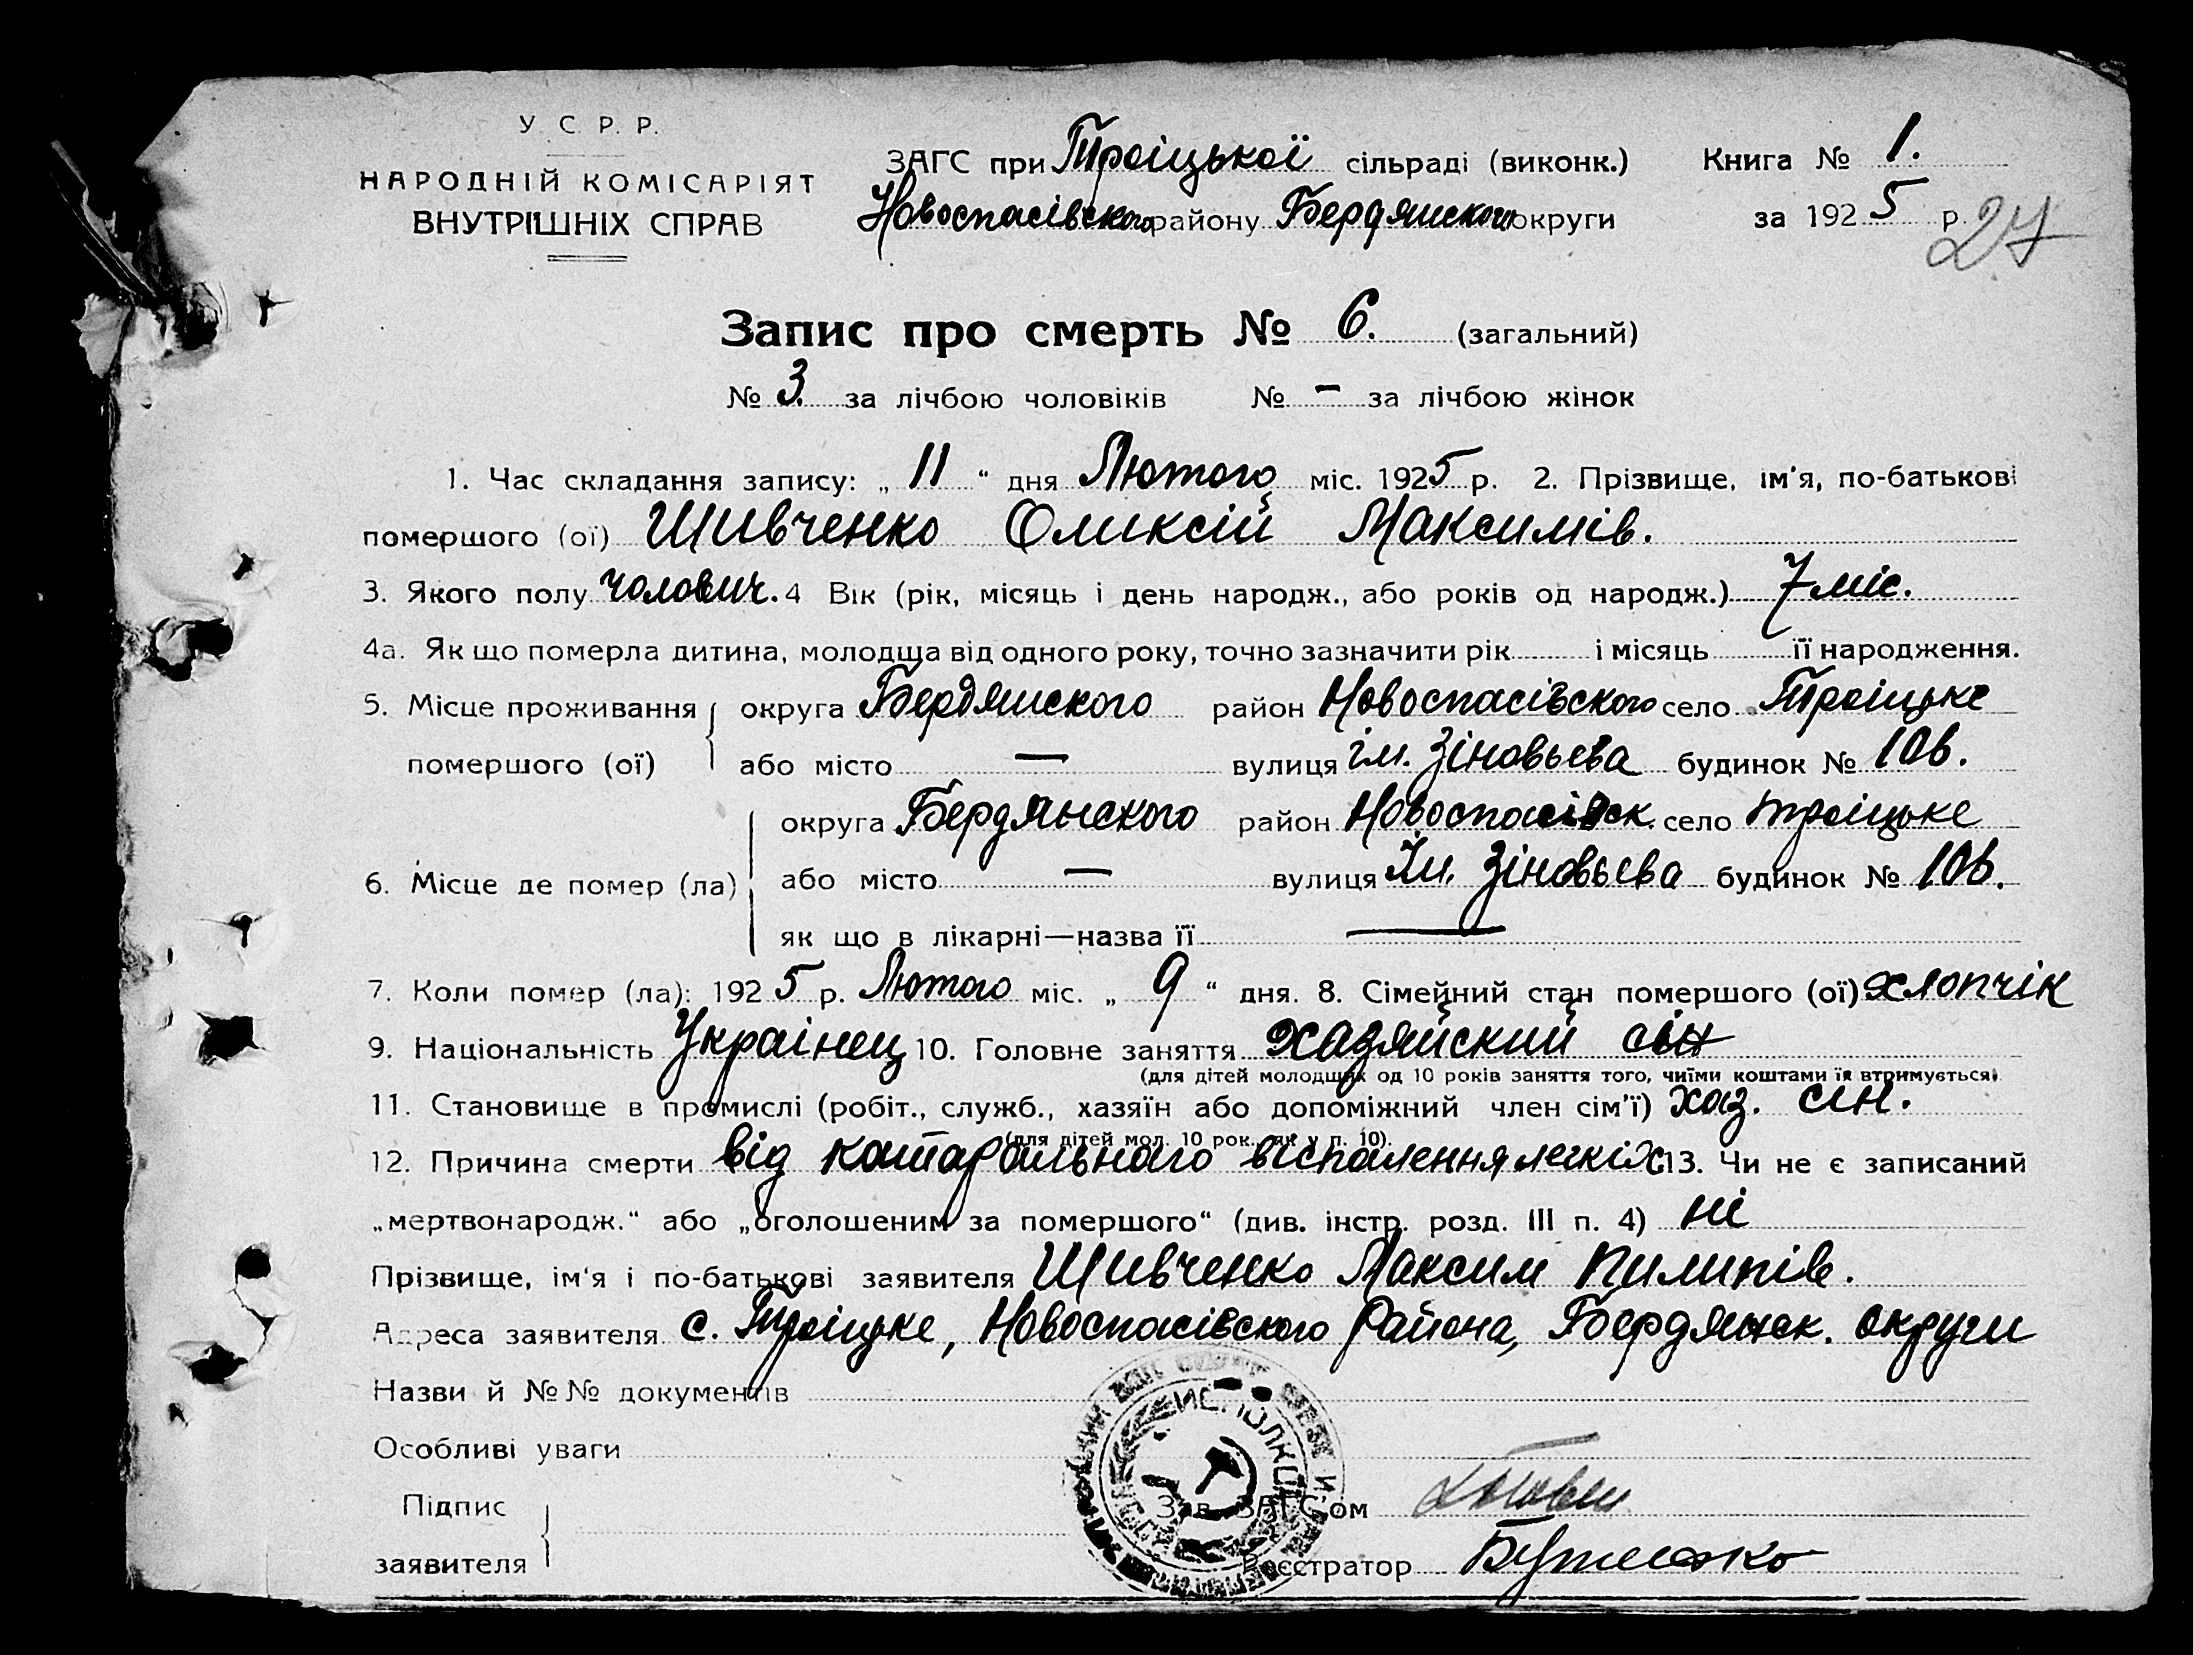 У. С. Р. Р.
НАРОДНІЙ КОМІСАРІЯТ
ВНУТРІШНІХ СПРАВ
ЗАГС при Троіцької сільраді (виконк.) Книга № 1.
Новоспасівского району Бердянского округи за 1925 р.
27
Запис про смерть № 6. (загальний)
№ 3. за лічбою чоловіків № — за лічбою жінок
1. Час складання запису: „ 11 “ дня Лютого міс. 1925 р. 2. Прізвище, ім'я, по-батькові
помершого (ої) Шивченко Оликсій Максимів.
3. Якого полу чолович. 4 Вік (рік, місяць і день народж., або років од народж.) 7 міс.
4а. Як що померла дитина, молодща від одного року, точно зазначити рік і місяць її народження.
5. Місце проживання округа Бердянского район Новоспасівского село Троіцьке
помершого (ої) або місто — вулиця ім. Зіновьєва будинок № 106.
округа Бердянского район Новоспасівск. село Троіцьке
6. Місце де помер (ла) або місто — вулиця Ім. Зіновьєва будинок № 106.
як що в лікарні—назва її —
7. Коли помер (ла): 1925 р. Лютого міс. „ 9 “ дня. 8. Сімейний стан помершого (ої) хлопчік
9. Національність Украінец 10. Головне заняття хазяйский сін
(для дітей молодщих од 10 років заняття того, чиїми коштами їх втримується)
11. Становище в промислі (робіт., служб., хазяїн або допоміжний член сім'ї) хаз. сін.
(для дітей мол. 10 рок., як у п. 10).
12. Причина смерти від катарального віспалення легкіх 13. Чи не є записаний
„мертвонародж.“ або „оголошеним за помершого“ (див. інстр. розд. III п. 4) ні
Прізвище, ім'я і по-батькові заявителя Шивченко Максим Пилипів.
Адреса заявителя с. Троіцьке, Новоспасівского Района, Бердянск. округи
Назви й №№ документів
Особливі уваги
Підпис
заявителя
Зав. ЗАГС'ом
Реєстратор Бутенко